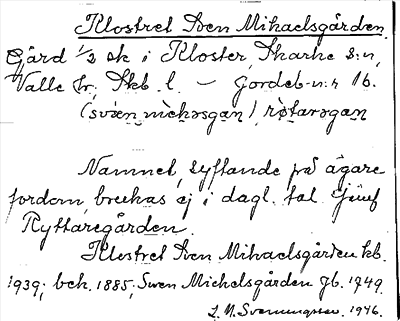 Klostret Sven Mikaelsgården
Gård 1/2 sk i Kloster, Skarke s:n,
Valle hr, Skb. l. — Jordeb-n:r 16.
(svän mickəsgaɳ) rötarəgaɳ
Namnet, syftande på ägare
fordom, brukas ej i dagl. tal. Jämf
Ryttaregården.
Klostret Sven Mikaelsgården kb.
1939; bek. 1885; Swen Michelsgården gb. 1949.
Svenungsson. 1946.